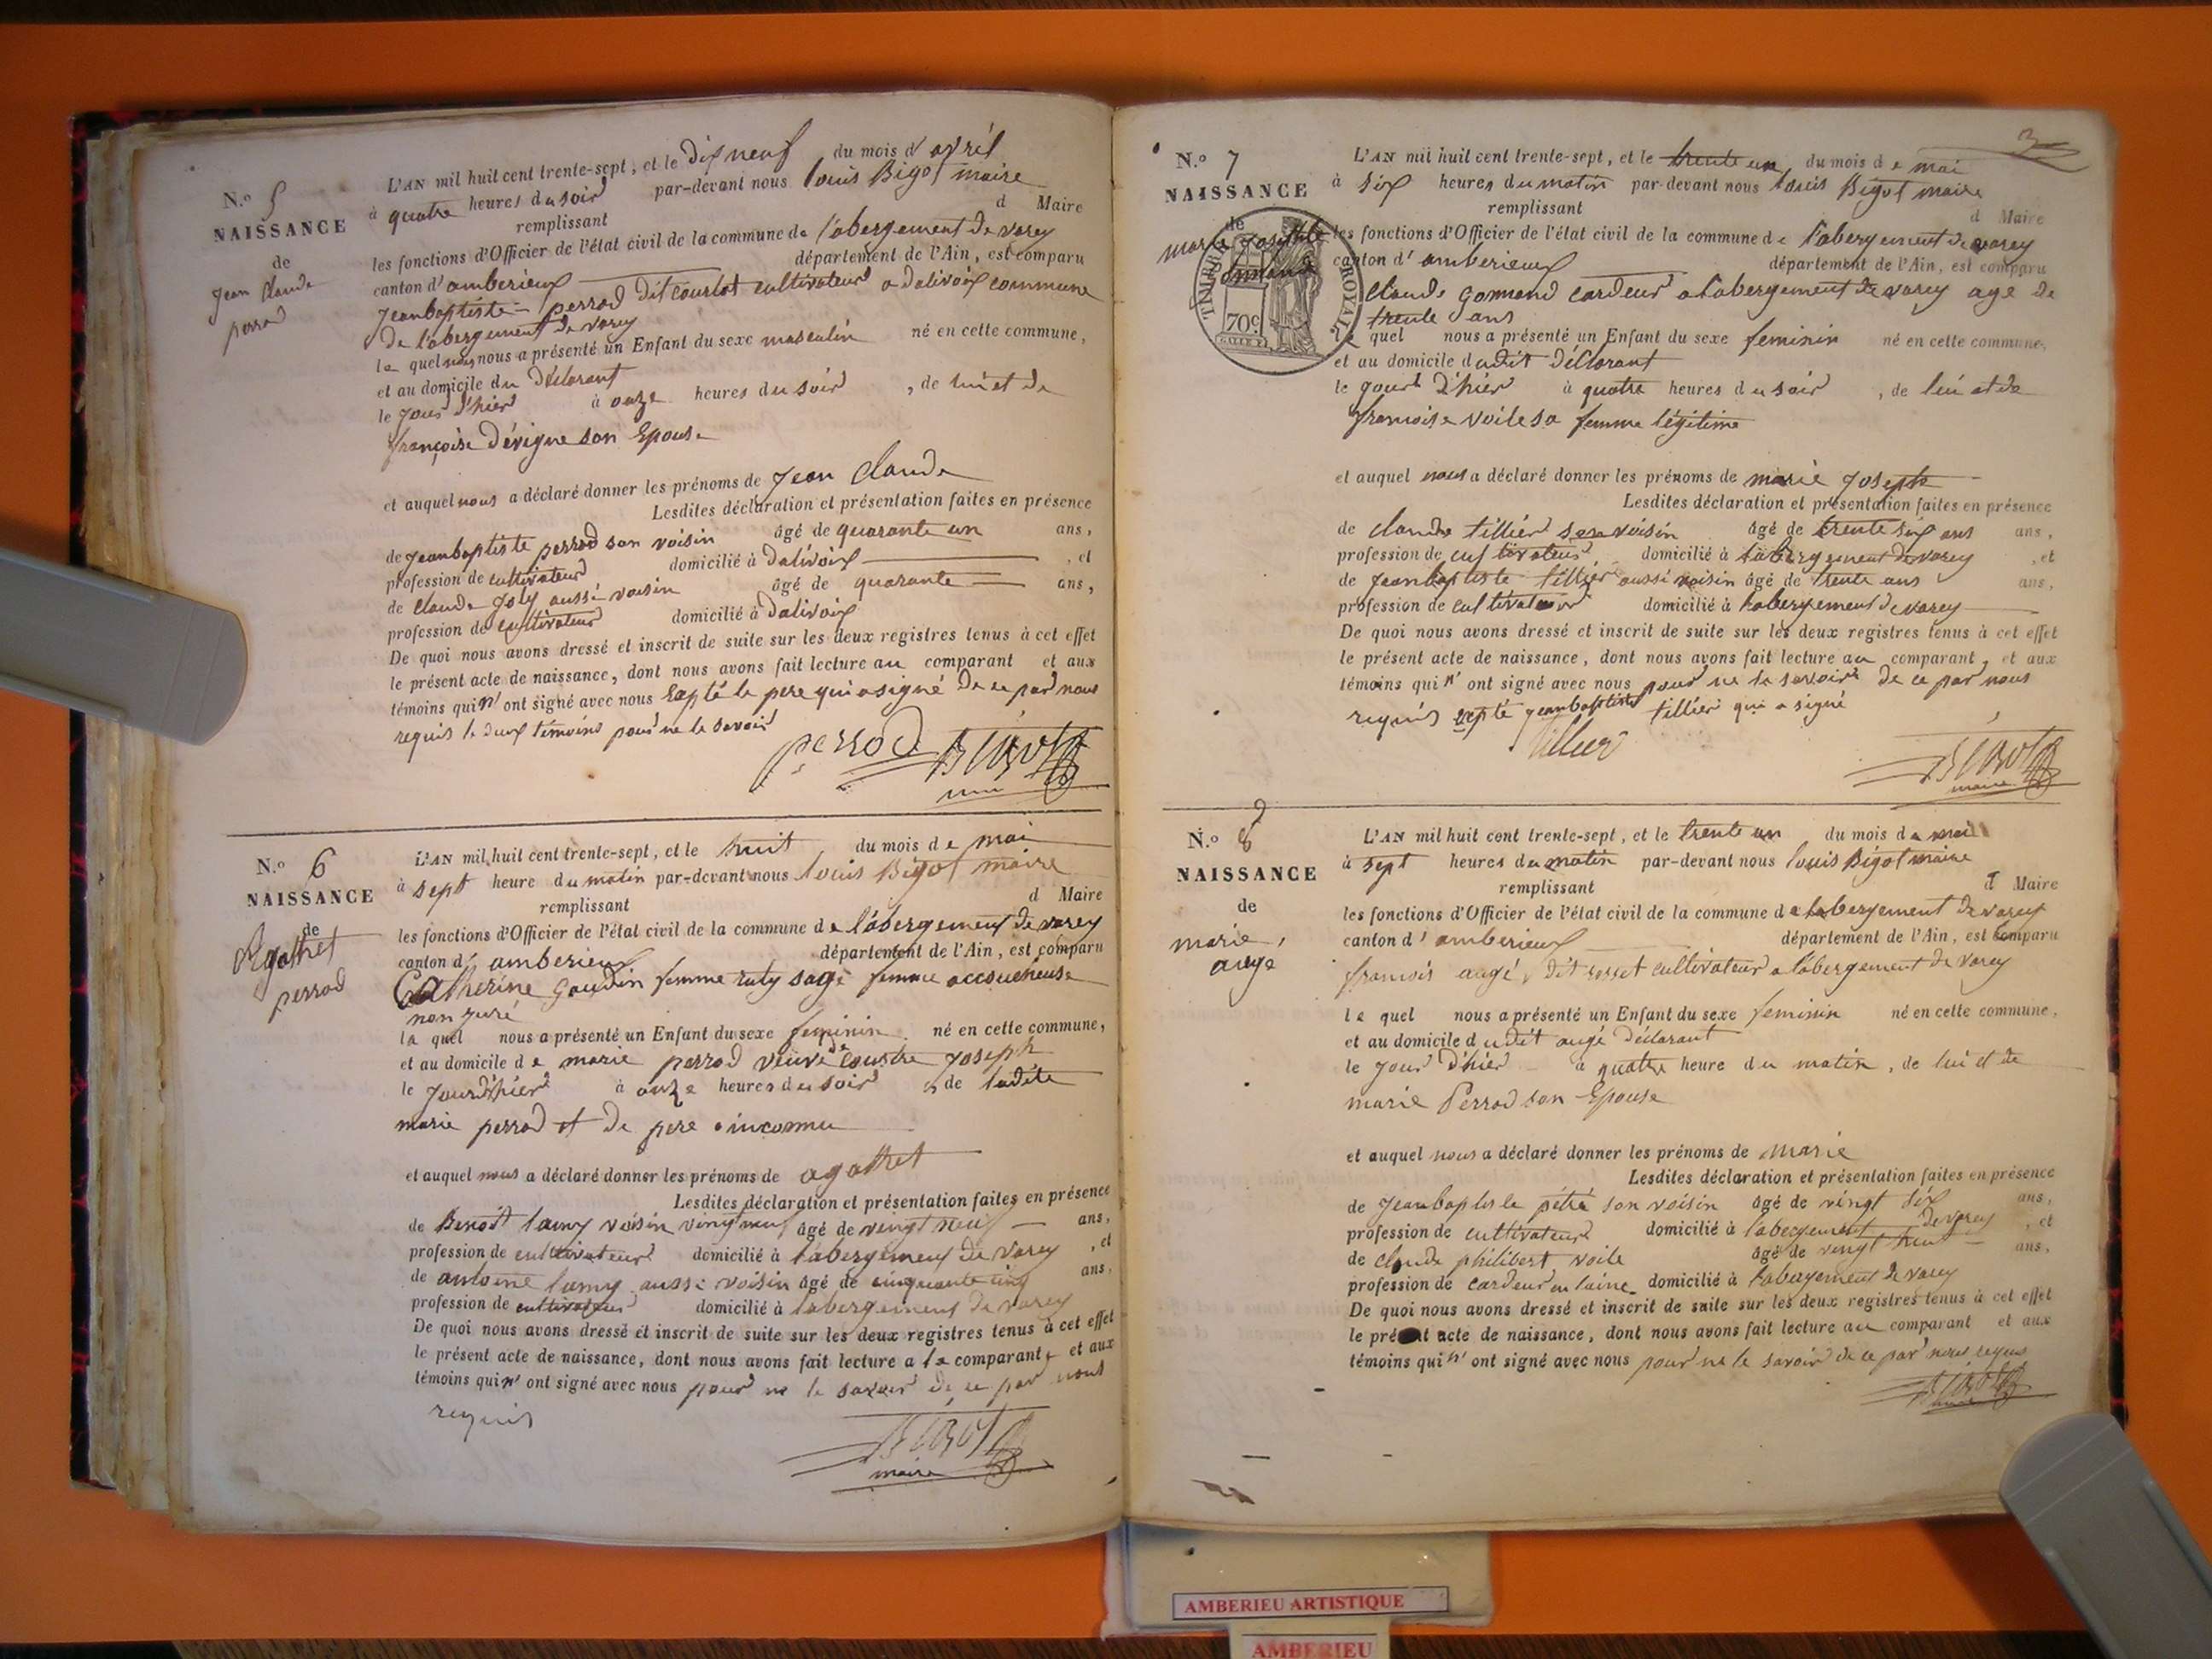 N.º 5
NAISSANCE
de
Jean Claude
perrod
L'AN mil huit cent trente-sept, et le dix neuf du mois d'avril
à quatre heures du soir par-devant nous louis Bigot maire
remplissant d Maire
les fonctions d'Officier de l'état civil de la commune de l'abergement de varey
canton d'amberieux département de l'Ain, est comparu
Jeanbaptiste perrod dit courlet cultivateur a dalivoix commune
De l'abergement de varey
le quel nous a présenté un Enfant du sexe masculin né en cette commune,
et au domicile du Déclarant
le jour d'hier à onze heures du soir, de lui et de
françoise Dévigne son Epouse
et auquel nous a déclaré donner les prénoms de Jean Claude
Lesdites déclaration et présentation faites en présence
de Jeanbaptiste perrod son voisin âgé de quarante un ans,
profession de cultivateur domicilié à Dalivoix, et
de claude Joly aussi voisin âgé de quarante ans,
profession de cultivateur domicilié à Dalivoix
De quoi nous avons dressé et inscrit de suite sur les deux registres tenus à cet effet
le présent acte de naissance, dont nous avons fait lecture au comparant et aux
témoins qui n'ont signé avec nous Exepté le pere qui a signé de ce par nous
requis le deux témoins pour ne le savoir
perrod Bigot
N.º 6
NAISSANCE
de
Agathet
perrod
L'AN mil huit cent trente-sept, et le huit du mois de mai
à sept heure du matin par-devant nous louis Bigot maire
remplissant d Maire
les fonctions d'Officier de l'état civil de la commune de l'abergement de varey
canton d'amberieux département de l'Ain, est comparu
Catherine Goudin femme ruty sage femme accoucheuse
non juré
la quel nous a présenté un Enfant du sexe feminin né en cette commune,
et au domicile de marie perrod veuve de Joseph
le Jour d'hier à onze heures du soir, de ladite
marie perrod et de pere inconnu
et auquel nous a déclaré donner les prénoms de agathet
Lesdites déclaration et présentation faites en présence
de Benoît lamy voisin vingt neuf âgé de vingt neuf ans,
profession de cultivateur domicilié à l'abergement de varey, et
de antoine lamy aussi voisin âgé de cinquante cinq ans,
profession de cultivateur domicilié à l'abergement de varey
De quoi nous avons dressé et inscrit de suite sur les deux registres tenus à cet effet
le présent acte de naissance, dont nous avons fait lecture a la comparante et aux
témoins qui n'ont signé avec nous pour ne le savoir de ce par nous
requis
Bigot
maire
3
N.º 7
NAISSANCE
de
marie Josephte
TIMBRE ROYAL
70c
L'AN mil huit cent trente-sept, et le trente un du mois de mai
à six heures du matin par-devant nous Louis Bigot maire
remplissant d Maire
les fonctions d'Officier de l'état civil de la commune de l'abergement de varey
canton d'amberieux département de l'Ain, est comparu
Claude Gormand cardeur a l'abergement de varey age de
trente ans
le quel nous a présenté un Enfant du sexe feminin né en cette commune,
et au domicile dudit déclarant
le jour d'hier à quatre heures du soir, de lui et de
francoise voile sa femme légitime
et auquel nous a déclaré donner les prénoms de marie Joseph
Lesdites déclaration et présentation faites en présence
de claude tillier son voisin âgé de trente six ans ans,
profession de cultivateur domicilié à l'abergement de varey, et
de Jeanbaptiste tillier aussi voisin âgé de trente ans ans,
profession de cultivateur domicilié à l'abergement de varey
De quoi nous avons dressé et inscrit de suite sur les deux registres tenus à cet effet
le présent acte de naissance, dont nous avons fait lecture au comparant, et aux
témoins qui n'ont signé avec nous pour ne le savoir de ce par nous
requis exepté jeanbaptiste tillier qui a signé
tillier
Bigot
maire
N.º 8
NAISSANCE
de
marie,
auge
L'AN mil huit cent trente-sept, et le trente un du mois de mai
à sept heures du matin par-devant nous louis Bigot maire
remplissant d Maire
les fonctions d'Officier de l'état civil de la commune de labergement de varey
canton d'amberieux département de l'Ain, est comparu
francois augé, dit rosset cultivateur a l'abergement de varey
le quel nous a présenté un Enfant du sexe feminin né en cette commune,
et au domicile dudit augé Déclarant
le jour d'hier à quatre heure du matin, de lui et de
marie Perrod son Epouse
et auquel nous a déclaré donner les prénoms de marie
Lesdites déclaration et présentation faites en présence
de Jeanbaptiste pétré son voisin âgé de vingt six ans,
profession de cultivateur domicilié à l'abergement de varey, et
de claude philibert voile âgé de vingt ans,
profession de cardeur en laine domicilié à l'abergement de varey
De quoi nous avons dressé et inscrit de suite sur les deux registres tenus à cet effet
le présent acte de naissance, dont nous avons fait lecture au comparant et aux
témoins qui n'ont signé avec nous pour ne le savoir de ce par nous requis
Bigot
maire
AMBERIEU ARTISTIQUE
AMBERIEU